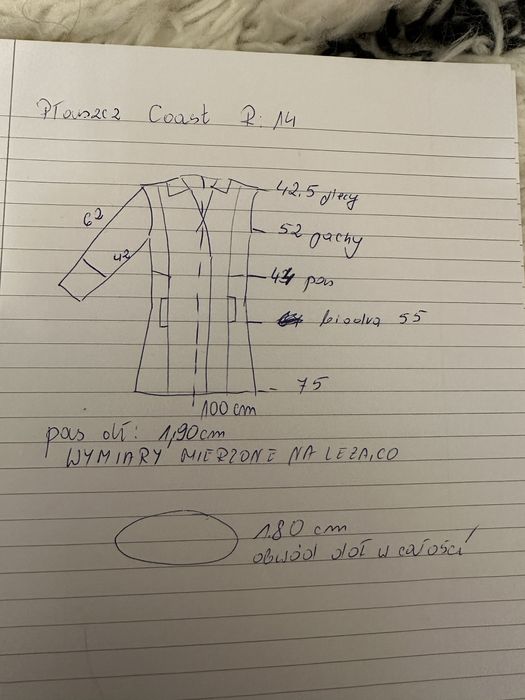 Płaszcz Coast R: 14
42.5 plecy
62
52 pachy
42
pas
biodra 55
75
100 cm
pas dł: 1,90cm
WYMIARY MIERZONE NA LEŻĄCO
1.80 cm
obwód dół w całości